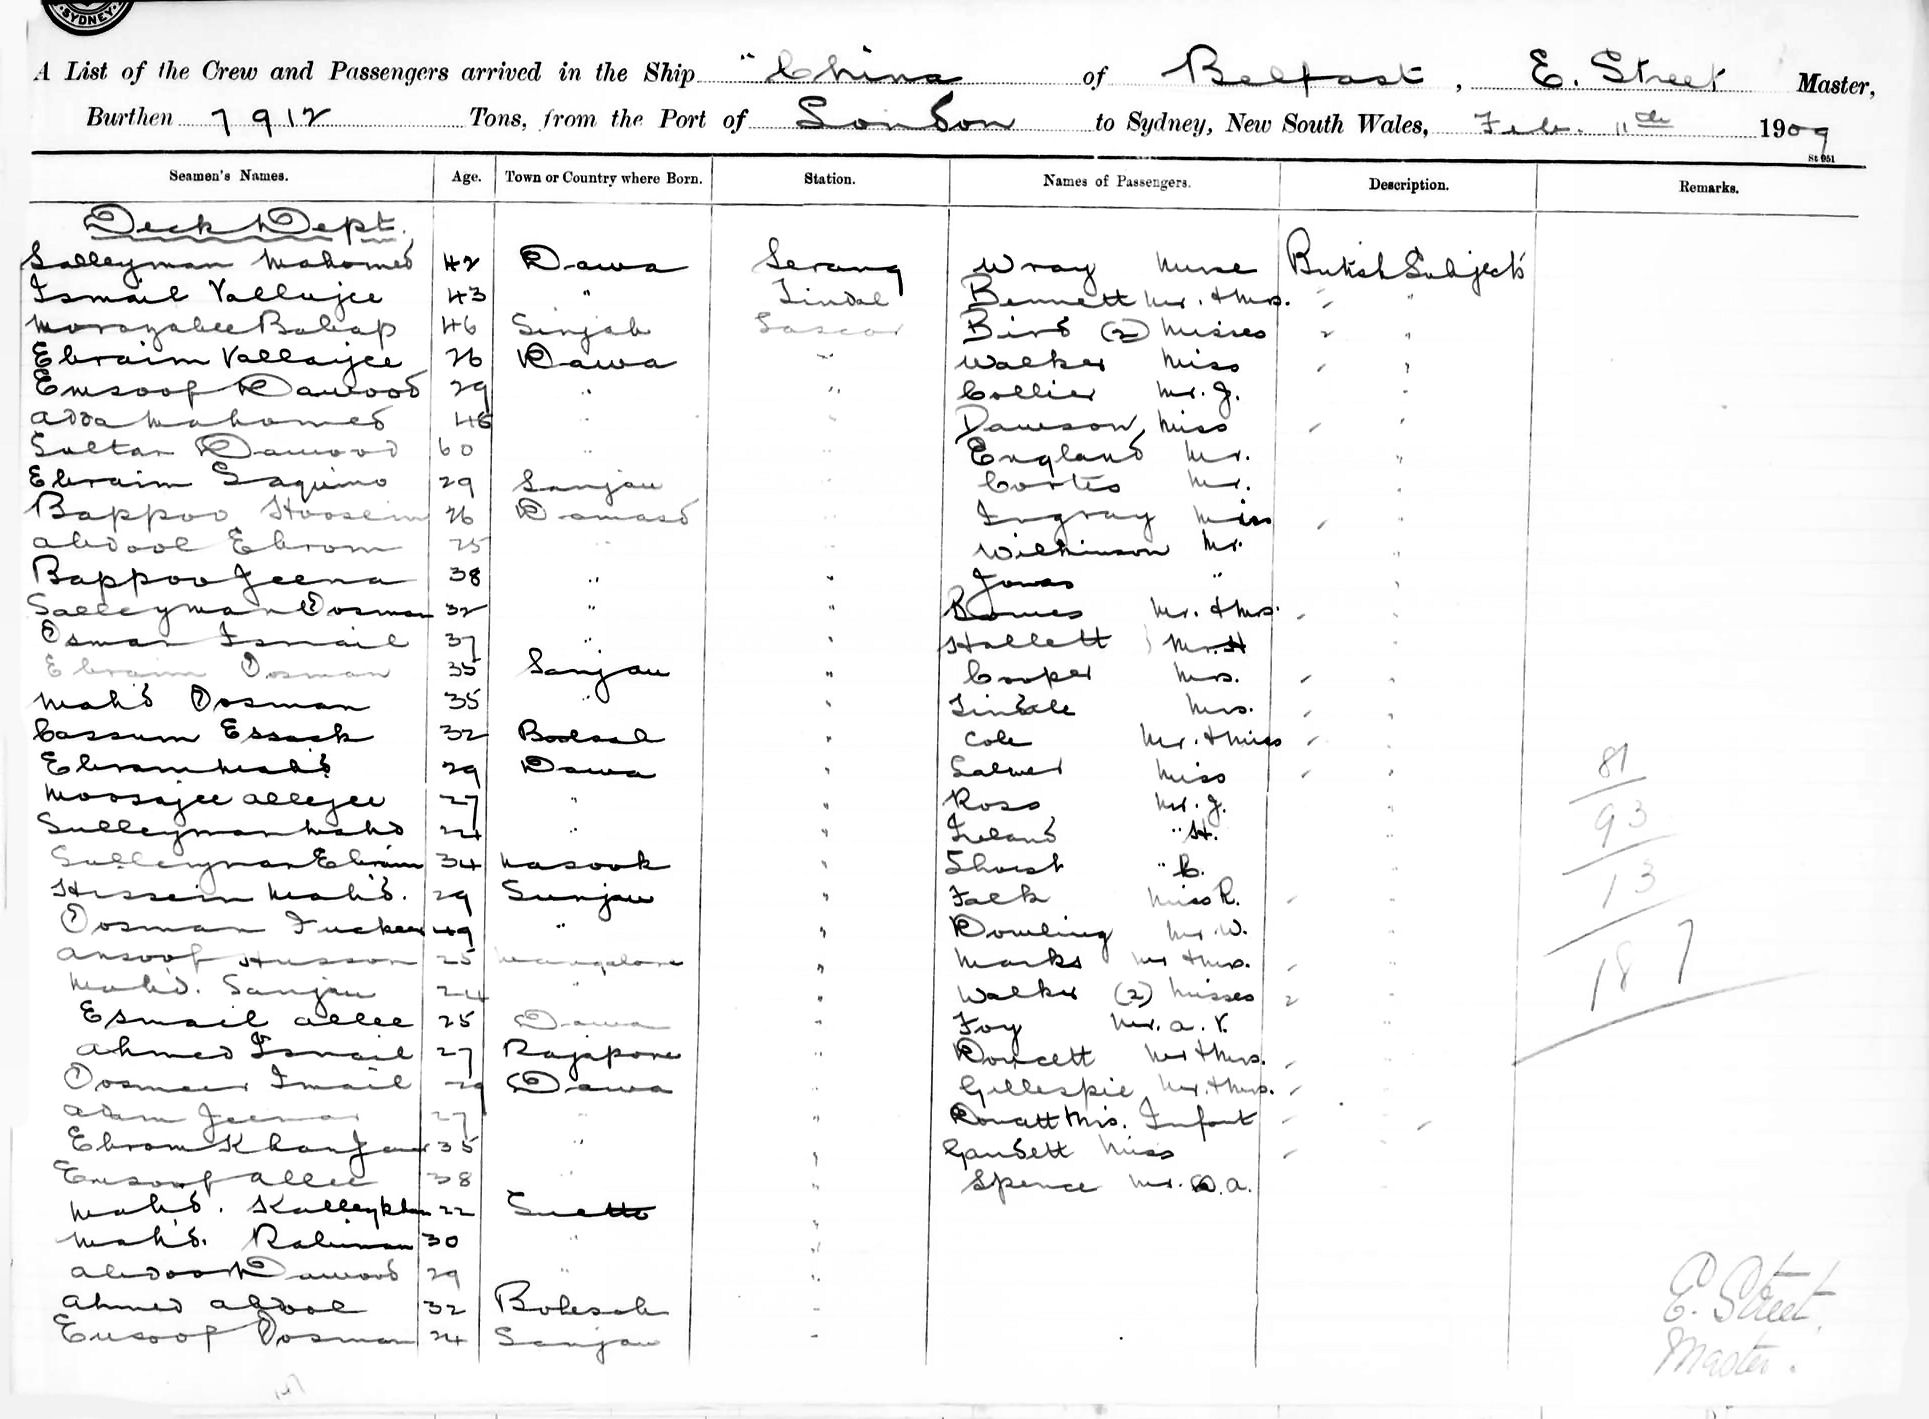 SYDNEY
A List of the Crew and Passengers arrived in the Ship "China of Belfast, E. Street Master,
Burthen 7912 Tons, from the Port of London to Sydney, New South Wales, Feb. 11th 1909
St 951
Seamen's Names. Age. Town or Country where Born. Station. Names of Passengers. Description. Remarks.
Deck Dept.
Salleyman Mahomed 42 Dawa Serang Wray Nurse British Subjects
Ismail Vallujee 43 " Tindal Bennett Mr. & Mrs. "
46 Sinjab Lascar Bird (2) Misses 2 "
Ebraim Vallaijee 26 Dawa " Walker Miss "
Emsoof Dawood 29 " " Collier Mr. J. "
Adda Mahomed 46 " " Dawson, Miss "
Sultan Dawood 60 " " England Mr. "
Ebraim 29 Sanjau Cortis Mr. "
Bappoo Hoosein 26 " Ingray Miss "
Abdool Ebrom 25 " " Wilkinson Mr. "
Bappoo Jeena 38 " " Jones " "
Salleyman Oosman 32 " " Mr. & Mrs. "
Osman Ismail 37 " " Hallett Mr. H
Ebraim Osman 35 Sanjau " Cooper Mrs. "
Mah'd Oosman 35 " " Tindale Mrs. "
Cassum Essack 32 " Cole Mr. & Miss "
Ebram Mah'd 29 Dawa " Miss "
Moosajee Allejee 27 " " Ross Mr. J. "
Sulleyman Mahd 24 " " Ireland " H. "
Sulleyman Ebraim 34 Masook " " C. "
Hissein Mah'd. 29 Sunjau " Falk Miss R. "
Oosman 49 " " Dowling Mr. W. "
Ansoof Husson 25 Mangalore " Marks Mr & Mrs. "
Mah'd. Sanjau 24 " " Walker (2) Misses 2 "
Esmail Allee 25 Dawa " Foy Mr. A. V. "
Ahmed Ismail 27 Rajapore " Mr & Mrs. "
Imail 29 Dawa " Gillespie Mr. & Mrs. "
Adam 27 " " Infant
Ebrom 35 " " Miss
Ensoof Allee 38 " " Spence Mr. A.
Mah'd. 22 "
Mah'd. Rahiman 30 " "
Dawood 29 " "
Ahmed Abdool 32 "
Eusoof Oosman 24 Sanjau "
81
93
13
187
E. Street.
Master.